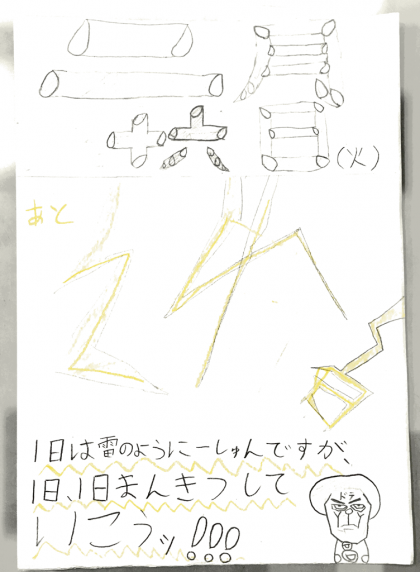 二月
十六日(火)
あと
24
1日は雷のように一しゅんですが、
1日、1日まんきつして
いこうッ!!!